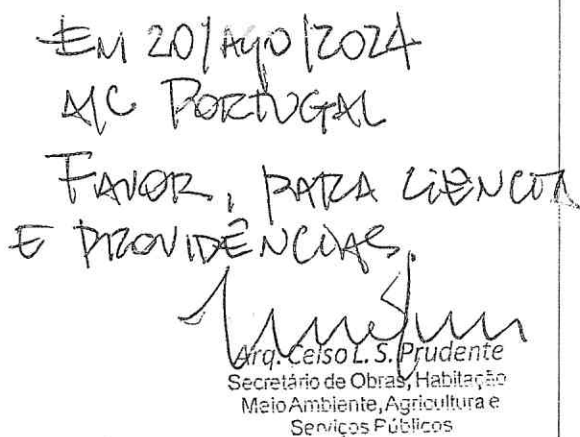 EM 20/AGO/2024
A/C PORTUGAL
FAVOR, PARA CIÊNCIA
E PROVIDÊNCIAS.
Arq. Celso L. S. Prudente
Secretário de Obras, Habitação
Meio Ambiente, Agricultura e
Serviços Públicos